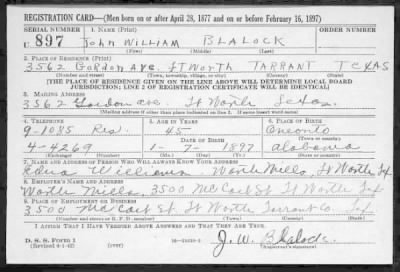 REGISTRATION CARD—(Men born on or after April 28, 1877 and on or before February 16, 1897)
SERIAL NUMBER 1. NAME (Print) ORDER NUMBER
U 897 John WILLIAM BLALOCK
(First) (Middle) (Last)
2. PLACE OF RESIDENCE (Print)
3562 Gordon Ave FT WORTH TARRANT TEXAS
(Number and street) (Town, township, village, or city) (County) (State)
[THE PLACE OF RESIDENCE GIVEN ON THE LINE ABOVE WILL DETERMINE LOCAL BOARD
JURISDICTION; LINE 2 OF REGISTRATION CERTIFICATE WILL BE IDENTICAL]
3. MAILING ADDRESS
3562 Gordon ave. Ft Worth Texas.
[Mailing address if other than place indicated on line 2. If same insert word same]
4. TELEPHONE 5. AGE IN YEARS 6. PLACE OF BIRTH
9-1085 Res. 45 Oneonto
DATE OF BIRTH (Town or county)
4-4269 1-7-1897 alabama
(Exchange) (Number) (Mo.) (Day) (Yr.) (State or country)
7. NAME AND ADDRESS OF PERSON WHO WILL ALWAYS KNOW YOUR ADDRESS
Edna Williams Worth Mills, Ft Worth Tex
8. EMPLOYER'S NAME AND ADDRESS
Worth Mills, 3500 McCart St Ft Worth Tex
9. PLACE OF EMPLOYMENT OR BUSINESS
3500 McCart St Ft Worth Tarrant Co. Tex
(Number and street or R. F. D. number) (Town) (County) (State)
I AFFIRM THAT I HAVE VERIFIED ABOVE ANSWERS AND THAT THEY ARE TRUE.
D. S. S. Form 1
(Revised 4-1-42) (over)
J. W. Blalock
(Registrant's signature)